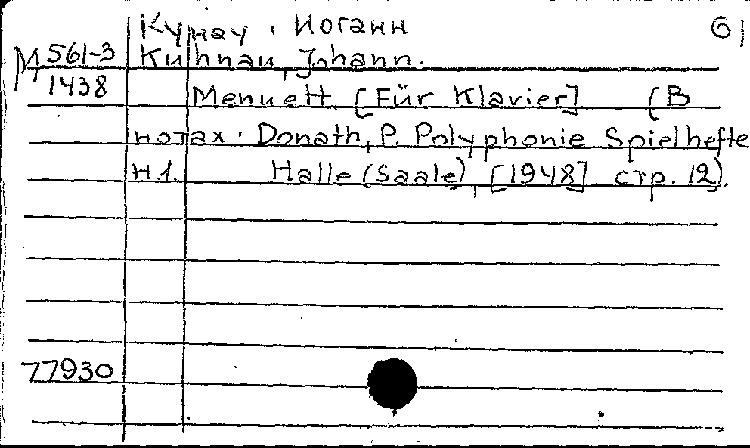 Кунау, Иоганн 61
М 561-3 Kuhnau, Johann.
1438
Menuett [Für Klavier] (В
нотах: Donath, P. Polyphonie Spielhefte
H 1. Halle (Saale), [1948] стр. 12).
77930